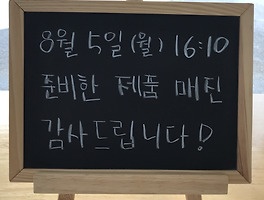 8월 5일 (월) 16:10
준비한 제품 매진
감사드립니다!